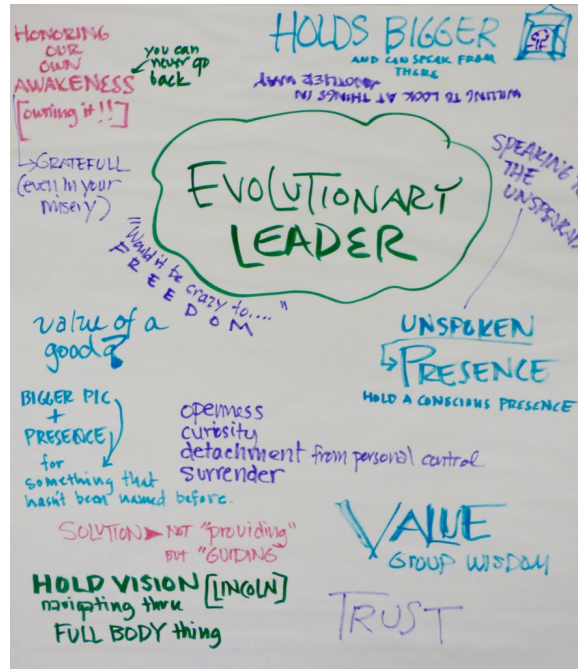 HONORING
OUR
OWN
AWAKENESS
[owning it!!]
you can
never go
back
HOLDS BIGGER
AND CAN SPEAK FROM
THERE
WILLING TO LOOK AT THINGS IN
ANOTHER WAY
GRATEFULL
(even in your
misery)
SPEAKING
THE
EVOLUTIONARY
LEADER
"Would it be crazy to...."
FREEDOM
value of a
good ?
UNSPOKEN
PRESENCE
HOLD A CONSCIOUS PRESENCE
BIGGER PIC
+
PRESENCE
for
something that
hasn't been named before.
openness
curiosity
detachment from personal control
surrender
SOLUTION NOT "providing"
BUT "GUIDING"
VALUE
GROUP WISDOM
HOLD VISION [LINCOLN]
navigating thru
FULL BODY thing
TRUST